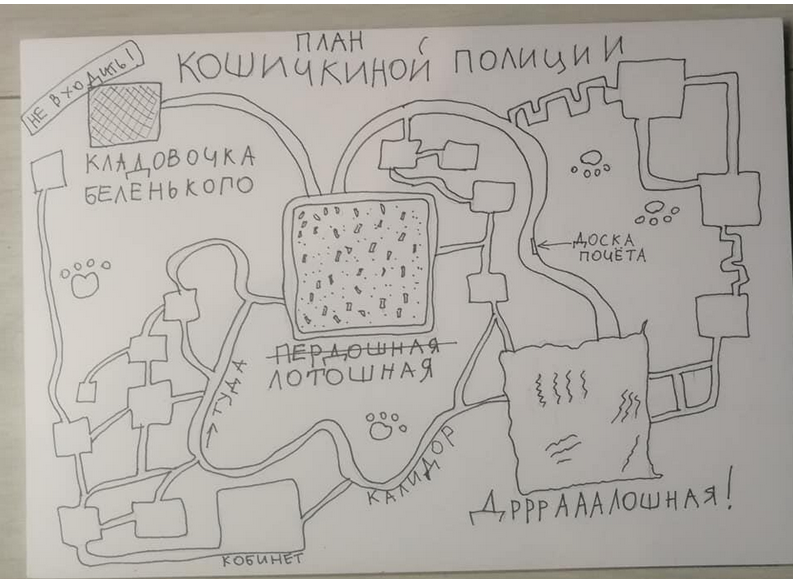 ПЛАН
КОШИЧКИНОЙ ПОЛИЦИИ
НЕ ВХОДИТЬ!
КЛАДОВОЧКА
БЕЛЕНЬКОГО
ДОСКА
ПОЧЁТА
ПЕРДОШНАЯ
ЛОТОШНАЯ
АДТУДА
КАЛИДОР
ДРРРАААЛОШНАЯ!
КОБИНЕТ